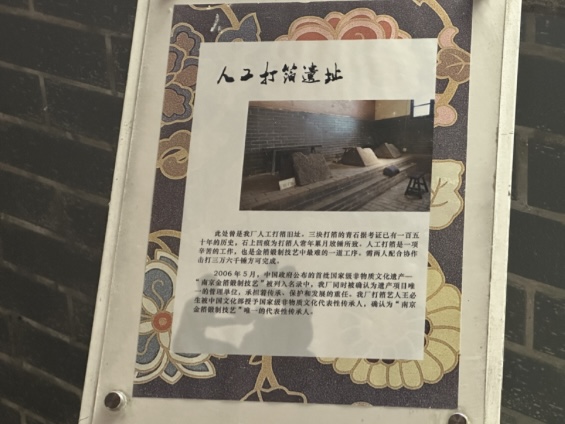 人工打箔遗址
此处曾是我厂人工打箔旧址。三块打箔的青石据考证已有一百五
十年的历史，石上凹痕为打箔人常年累月放锤所致。人工打箔是一项
辛苦的工作，也是金箔锻制技艺中最难的一道工序。需两人配合协作
击打三万六千锤方可完成。
2006年5月，中国政府公布的首批国家级非物质文化遗产—
“南京金箔锻制技艺”被列入名录中，我厂同时被确认为遗产项目唯
一的管理单位，承担着传承、保护和发展的重任。我厂打箔艺人王必
生被中国文化部授予国家级非物质文化代表性传承人，确认为“南京
金箔锻制技艺”唯一的代表性传承人。